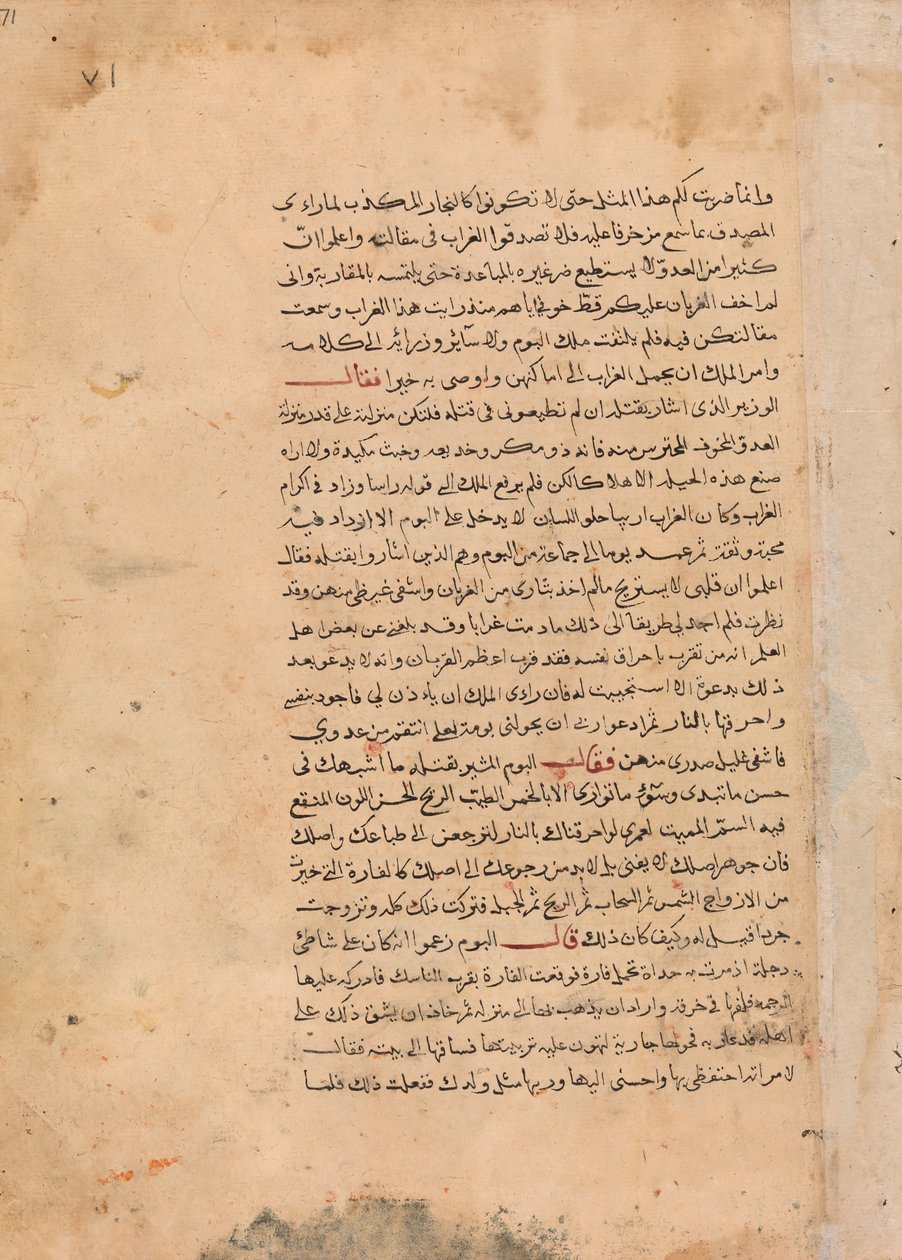 71
٧١
وانما ضربت لكم هذا المثل حتى لا تكونوا كالنجار المكذب لما راءى
المصدق بما سمع مزخرفا عليه فلا تصدقوا الغراب فى مقالته واعلموا انّ
كثيرا من العدوّ لا يستطيع ضر غيره بالمباعدة حتى يلتمسه بالمقاربة وانى
لم اخف الغربان عليكم قطّ خوفى اياهم منذ رايت هذا الغراب وسمعت
مقالتكن فيه فلم يلتفت ملك البوم ولا سآئر وزرائه الى كلامه
وامر الملك ان يحمل الغراب الى اماكنهن واوصى به خيرا فقال
الوزير الذى اشار بقتله ان لم تطيعونى فى قتله فلتكن منزلته على قدر منزلة
العدو المخوف المحترس منه فانه ذو مكر وخديعه وخبث مكيدة ولا اراه
صنع هذه الحيله الا هلاكا لكن فلم يرفع الملك الى قوله راسا وزاد فى اكرام
الغراب وكان الغراب اريبا حلو اللسان لا يدخل على البوم الا ازداد فيه
محبة وثقة ثم عمد يوما الى جماعة من البوم وهم الذين اشاروا بقتله فقال
اعلموا ان قلبى لا يستريح ما لم اخذ بثارى من الغربان واشفى غيظى منهن وقد
نظرت فلم اجد لى طريقا الى ذلك ما دمت غرابا وقد بلغنى عن بعض اهل
العلم انه من تقرب باحراق نفسه فقد قرب اعظم القربان وانه لا يدعو بعد
ذلك بدعوة الا استجيبت له فان راءى الملك ان ياءذن لي فاجود بنفسى
واحرقها بالنار ثم ادعوا ربى ان يحولنى بومة لعلى انتقم من عدوي
فاشفى غليل صدرى منهن فقالت البوم المشير بقتله ما اشبهك فى
حسن ما تبدى وسوء ما توارى الا بالخمر الطيب الريح الحسن اللون المنقع
فيه السمّ المميت لعمري لو احرقناك بالنار لترجعن الى طباعك واصلك
فان جوهر اصلك لا يفنى بل لا بد من رجوعك الى اصلك كالفارة التى خيرت
من الازواج الشمس ثم السحاب ثم الريح ثم الجبل فتركت ذلك كله وتزوجت
جرذا قيل له وكيف كان ذلك قال البوم زعموا انه كان على شاطئ
دجلة اذ مرت به حداة تحمل فارة فوقعت الفارة بقرب الناسك فادركه عليها
الرحمه فلفها فى خرقة واراد ان يذهب بها الى منزله ثم خاف ان يشق ذلك على
اهله فدعا ربه فحولها جارية لتهون عليه تربيتها فساقها الى بيته فقال
لامراته احتفظى بها واحسنى اليها وربيها مثل ولدك ففعلت ذلك فلما